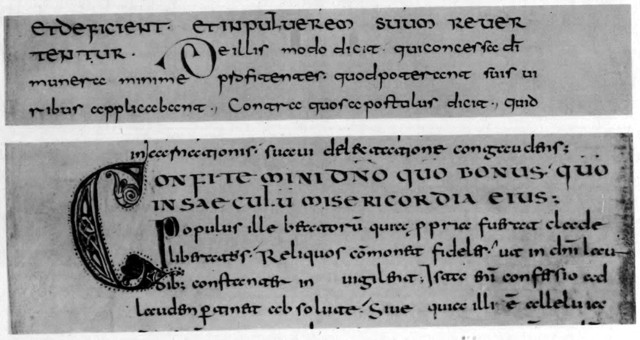 ET DEFICIENT· ET IN PULUEREM SUUM REUER
TENTUR· De illis modo dicit· qui concesso dī
munere minime profitentes· quod poterant suis ui
ribus applicabant., Contra quos apostolus dicit., quid
incarnationis· suaui delectatione congaudens:
CONFITEMINI DÑO QUO BONUS· QUO
IN SAECULŪ MISERICORDIA EIUS:
Populus ille beatorū quia ppria fuerat clade
liberatus· Reliquos cōmonet fideles· ut in dnī lau
dib; constanter in uigilent· Ista enī confessio ad
laudem ptinet absolute· Siue quia illi ē alleluiae